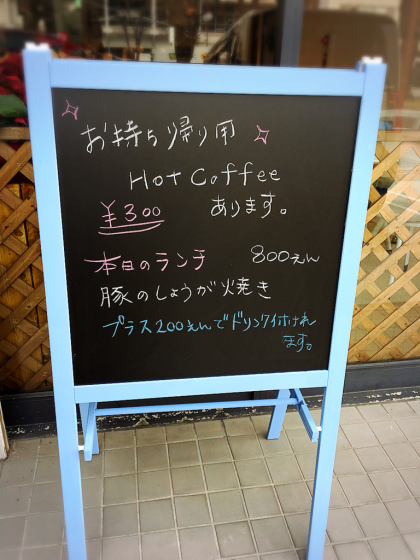 お持ち帰り用
Hot Coffee
¥300 あります。
本日のランチ 800えん
豚のしょうが焼き
プラス200えんでドリンク付けれ
ます。